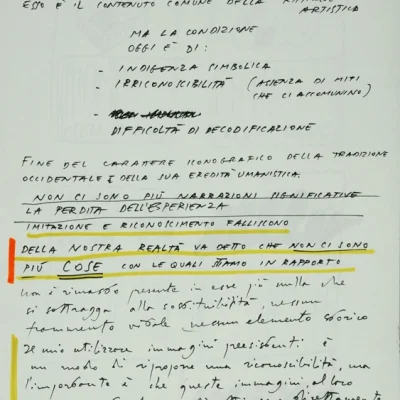 ESSO È IL CONTENUTO COMUNE DELLA
ARTISTICA
MA LA CONDIZIONE
OGGI È DI:
- INDIGENZA SIMBOLICA
- IRRICONOSCIBILITÀ (ASSENZA DI MITI
CHE CI ACCOMUNINO)
-
DIFFICOLTÀ DI DECODIFICAZIONE
FINE DEL CARATTERE ICONOGRAFICO DELLA TRADIZIONE
OCCIDENTALE E DELLA SUA EREDITÀ UMANISTICA.
NON CI SONO PIÙ NARRAZIONI SIGNIFICATIVE
LA PERDITA DELL'ESPERIENZA
IMITAZIONE E RICONOSCIMENTO FALLISCONO
DELLA NOSTRA REALTÀ VA DETTO CHE NON CI SONO
PIÙ COSE CON LE QUALI STIAMO IN RAPPORTO
non è rimasto presente in esse più nulla che
si sottragga alla sostituibilità, nessun
frammento vitale nessun elemento storico
Il mio utilizzare immagini preesistenti è
un modo di riproporre una riconoscibilità, ma
l'importante è che queste immagini, al loro